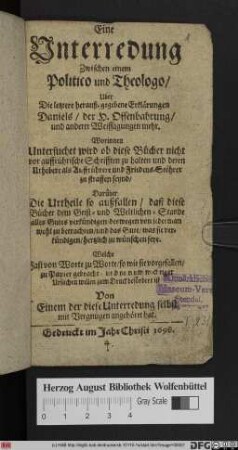 Eine
Unterredung
Zwischen einem
Politico und Theologo/
Uber
Die letzere herauß gegebene Erklärungen
Daniels/ der H. Offenbahrung/
und anderer Weissagungen mehr.
Worinnen
Untersuchet wird ob diese Bücher nicht
vor auffrührische Schrifften zu halten und deren
Urhebere als Auffrührere und Friedens-Stöhrer
zu straffen seynd/
Darüber
Die Urtheile so außfallen/ daß diese
Bücher dem Geist- und Weltlichen-Stande
alles Gutes verkündigen/ derowegen sie
wohl zu betrachten/ und das Gute, was sie ver-
kündigen/ hertzlich zu wünschen seye.
Welche
Fast von Worte zu Worte/ so wie sie vorgefallen/
zu Papier gebracht/ und
Ursachen willen zum Druck befordert ist
Von
Einem der diese Unterredung selbst
mit Vergnügen angehöret hat.
Gedruckt im Jahr Christi 1698.
Herzog August Bibliothek Wolfenbüttel
Gray Scale
DFG